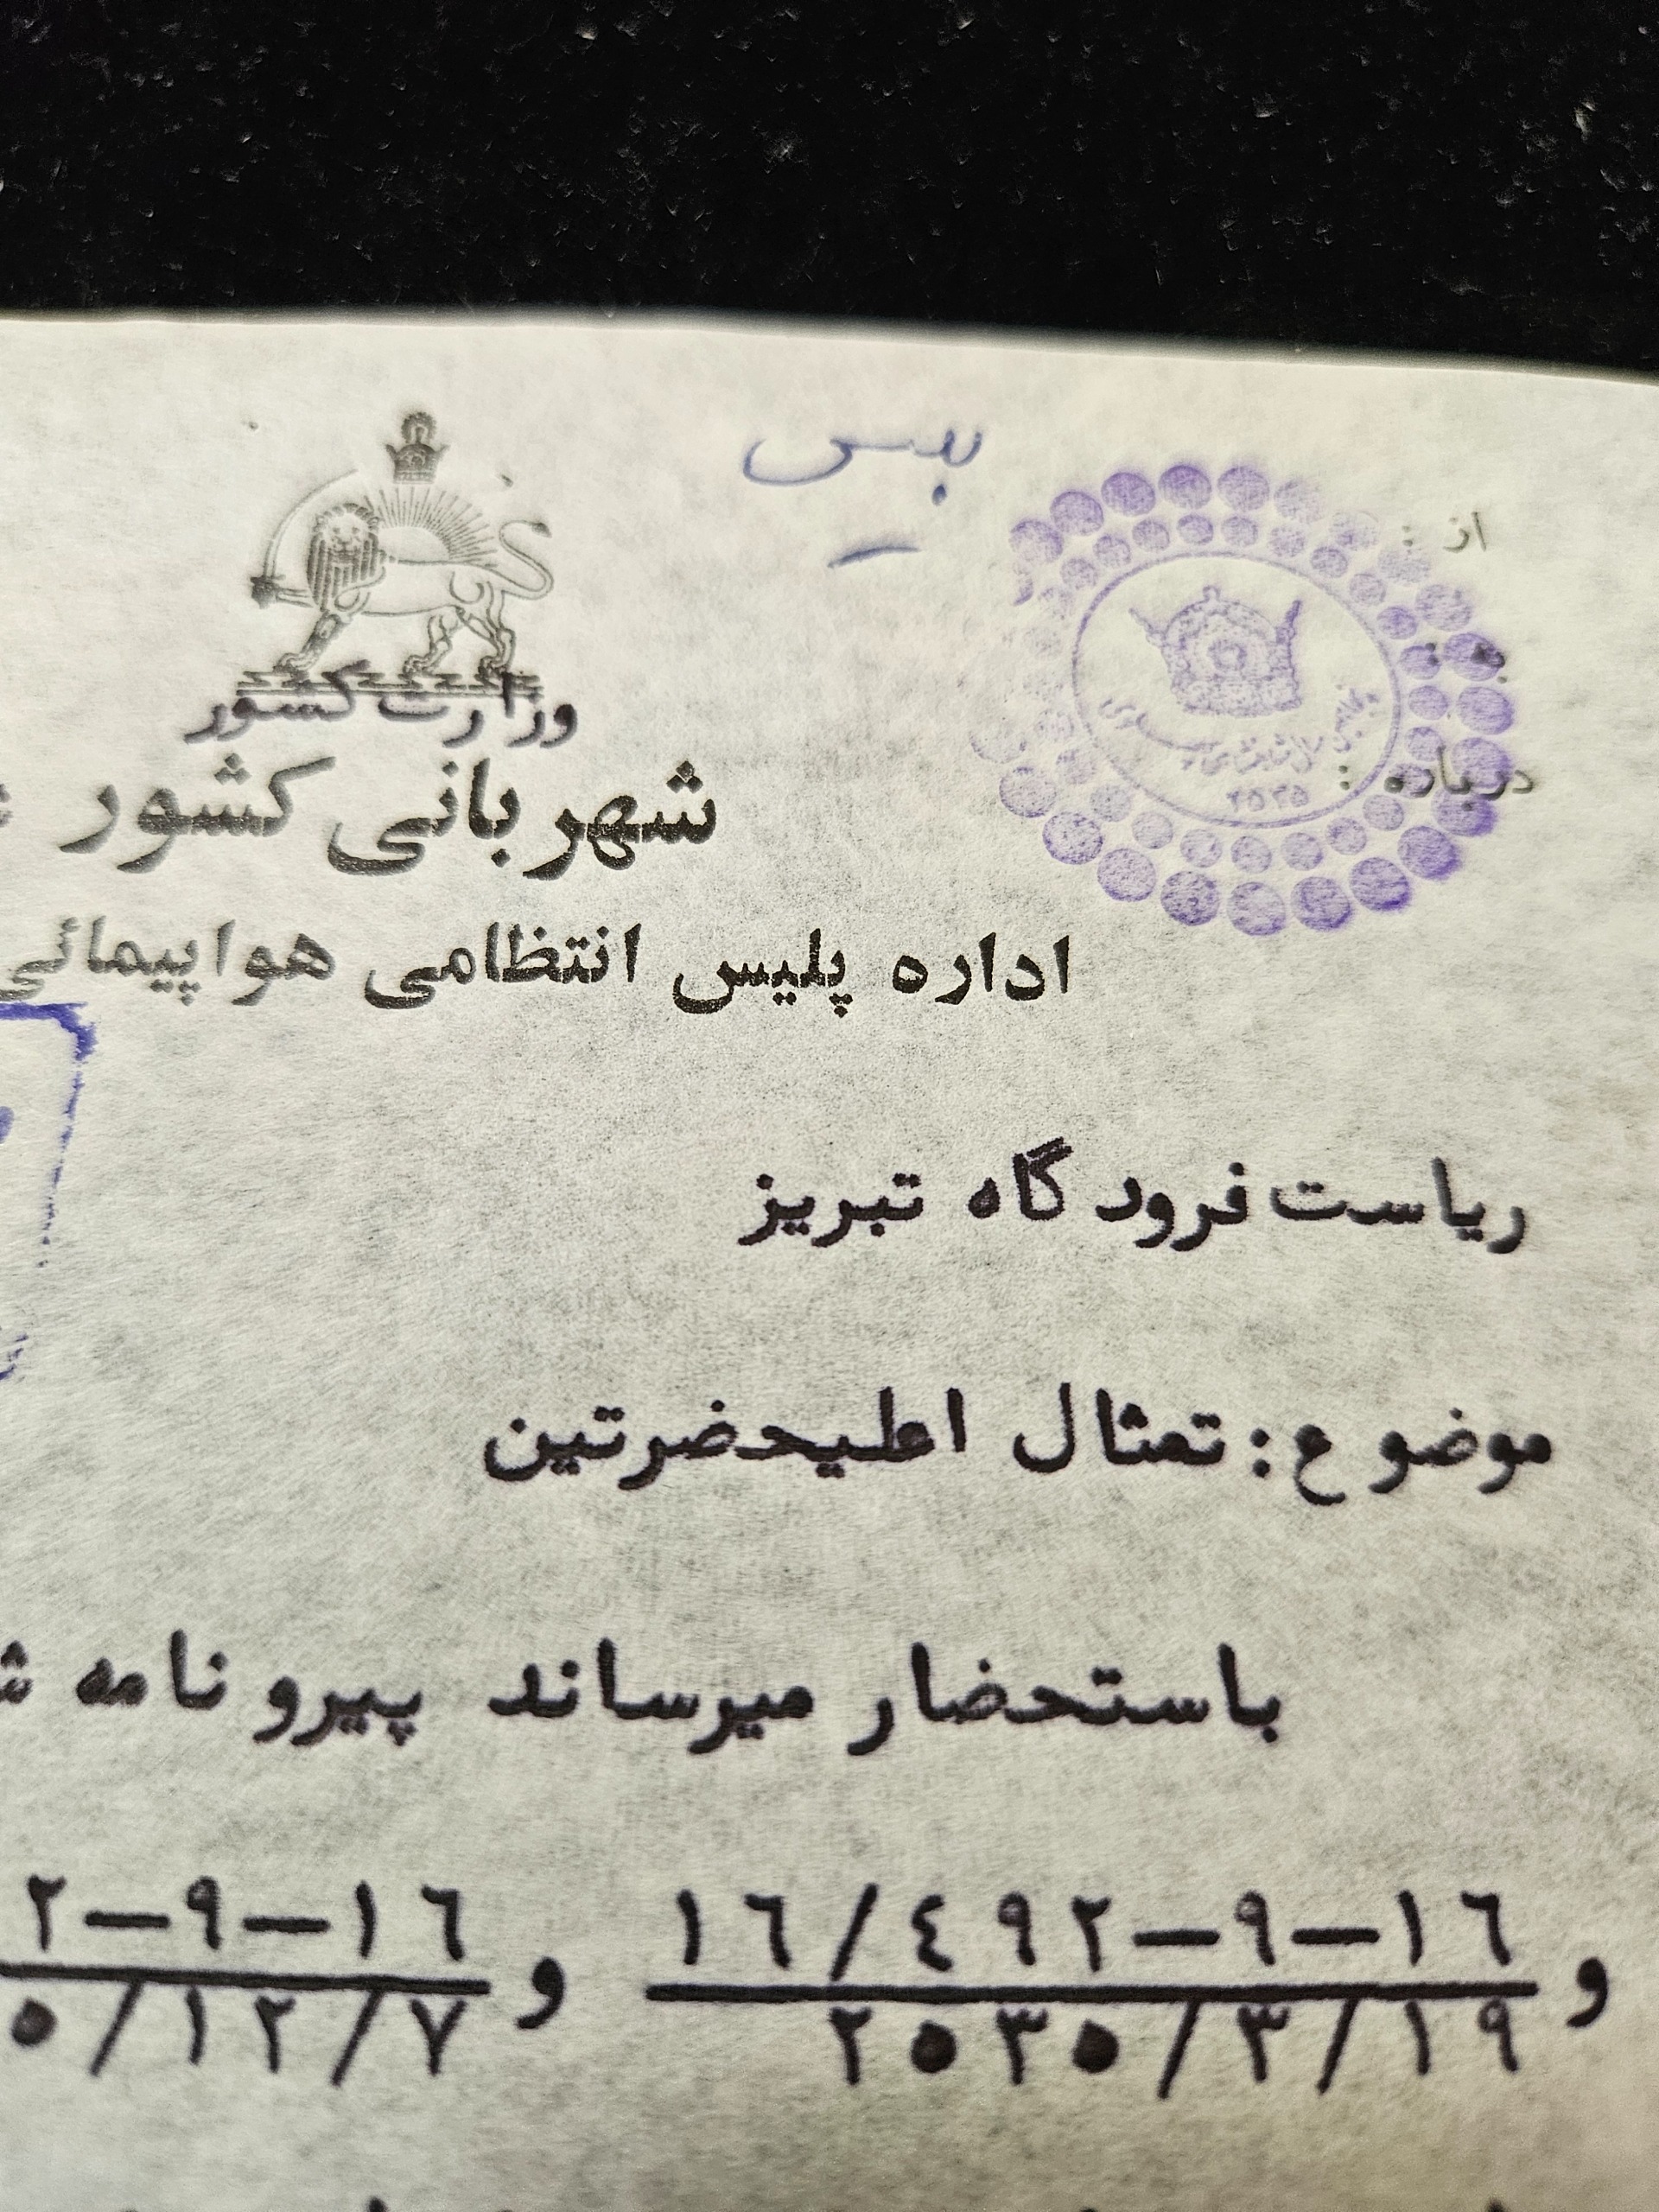 از :
به :
درباره :
۲۵۳۵
وزارت کشور
شهربانی کشور
اداره پلیس انتظامی هواپیمائی
ریاست فرودگاه تبریز
موضوع : تمثال اعلیحضرتین
باستحضار میرساند پیرو نامه
۱۶/۴۹۲-۹-۱۶ و ۲-۹-۱۶
و ۲۵۳۵/۳/۱۹ ۵/۱۲/۷